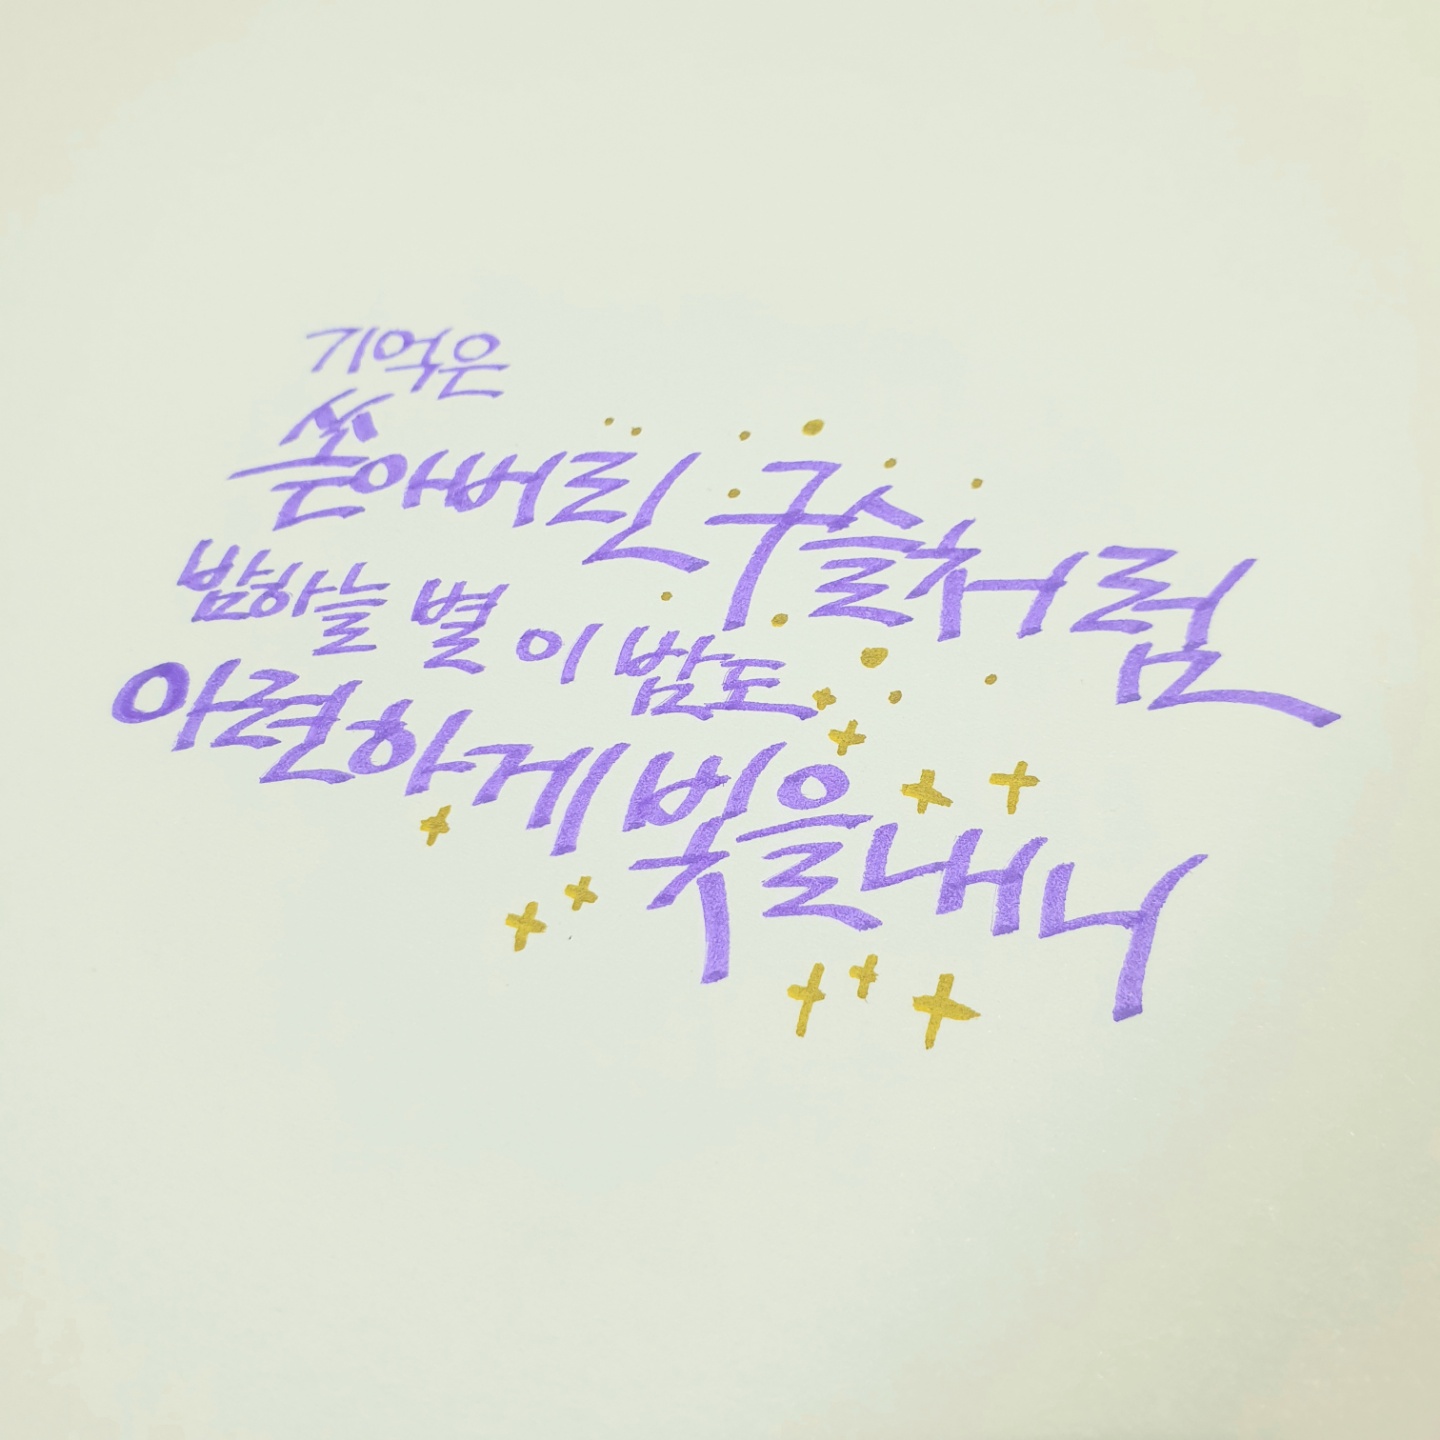 기억은
쏟아버린 구슬처럼
밤하늘 별 이 밤도
아련하게 빛을 내니